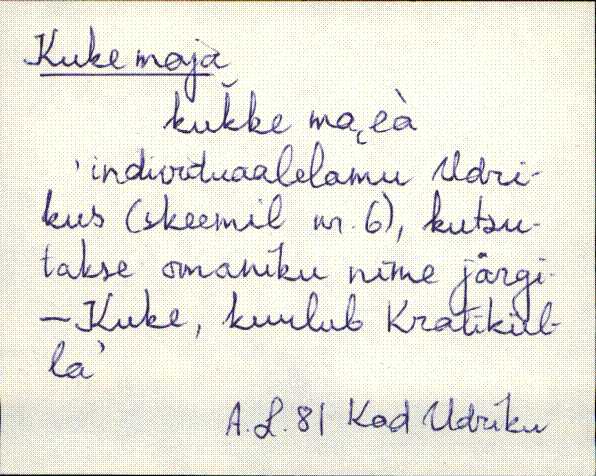 Kuke maja
kuk̆ke ma͔eà
'individuaalelamu Udri-
kus (skeemil nr. 6), kutsu-
takse omaniku nime järgi-
– Kuke, kuulub Kratikül-
la'
A.L. 81 Kad Udriku